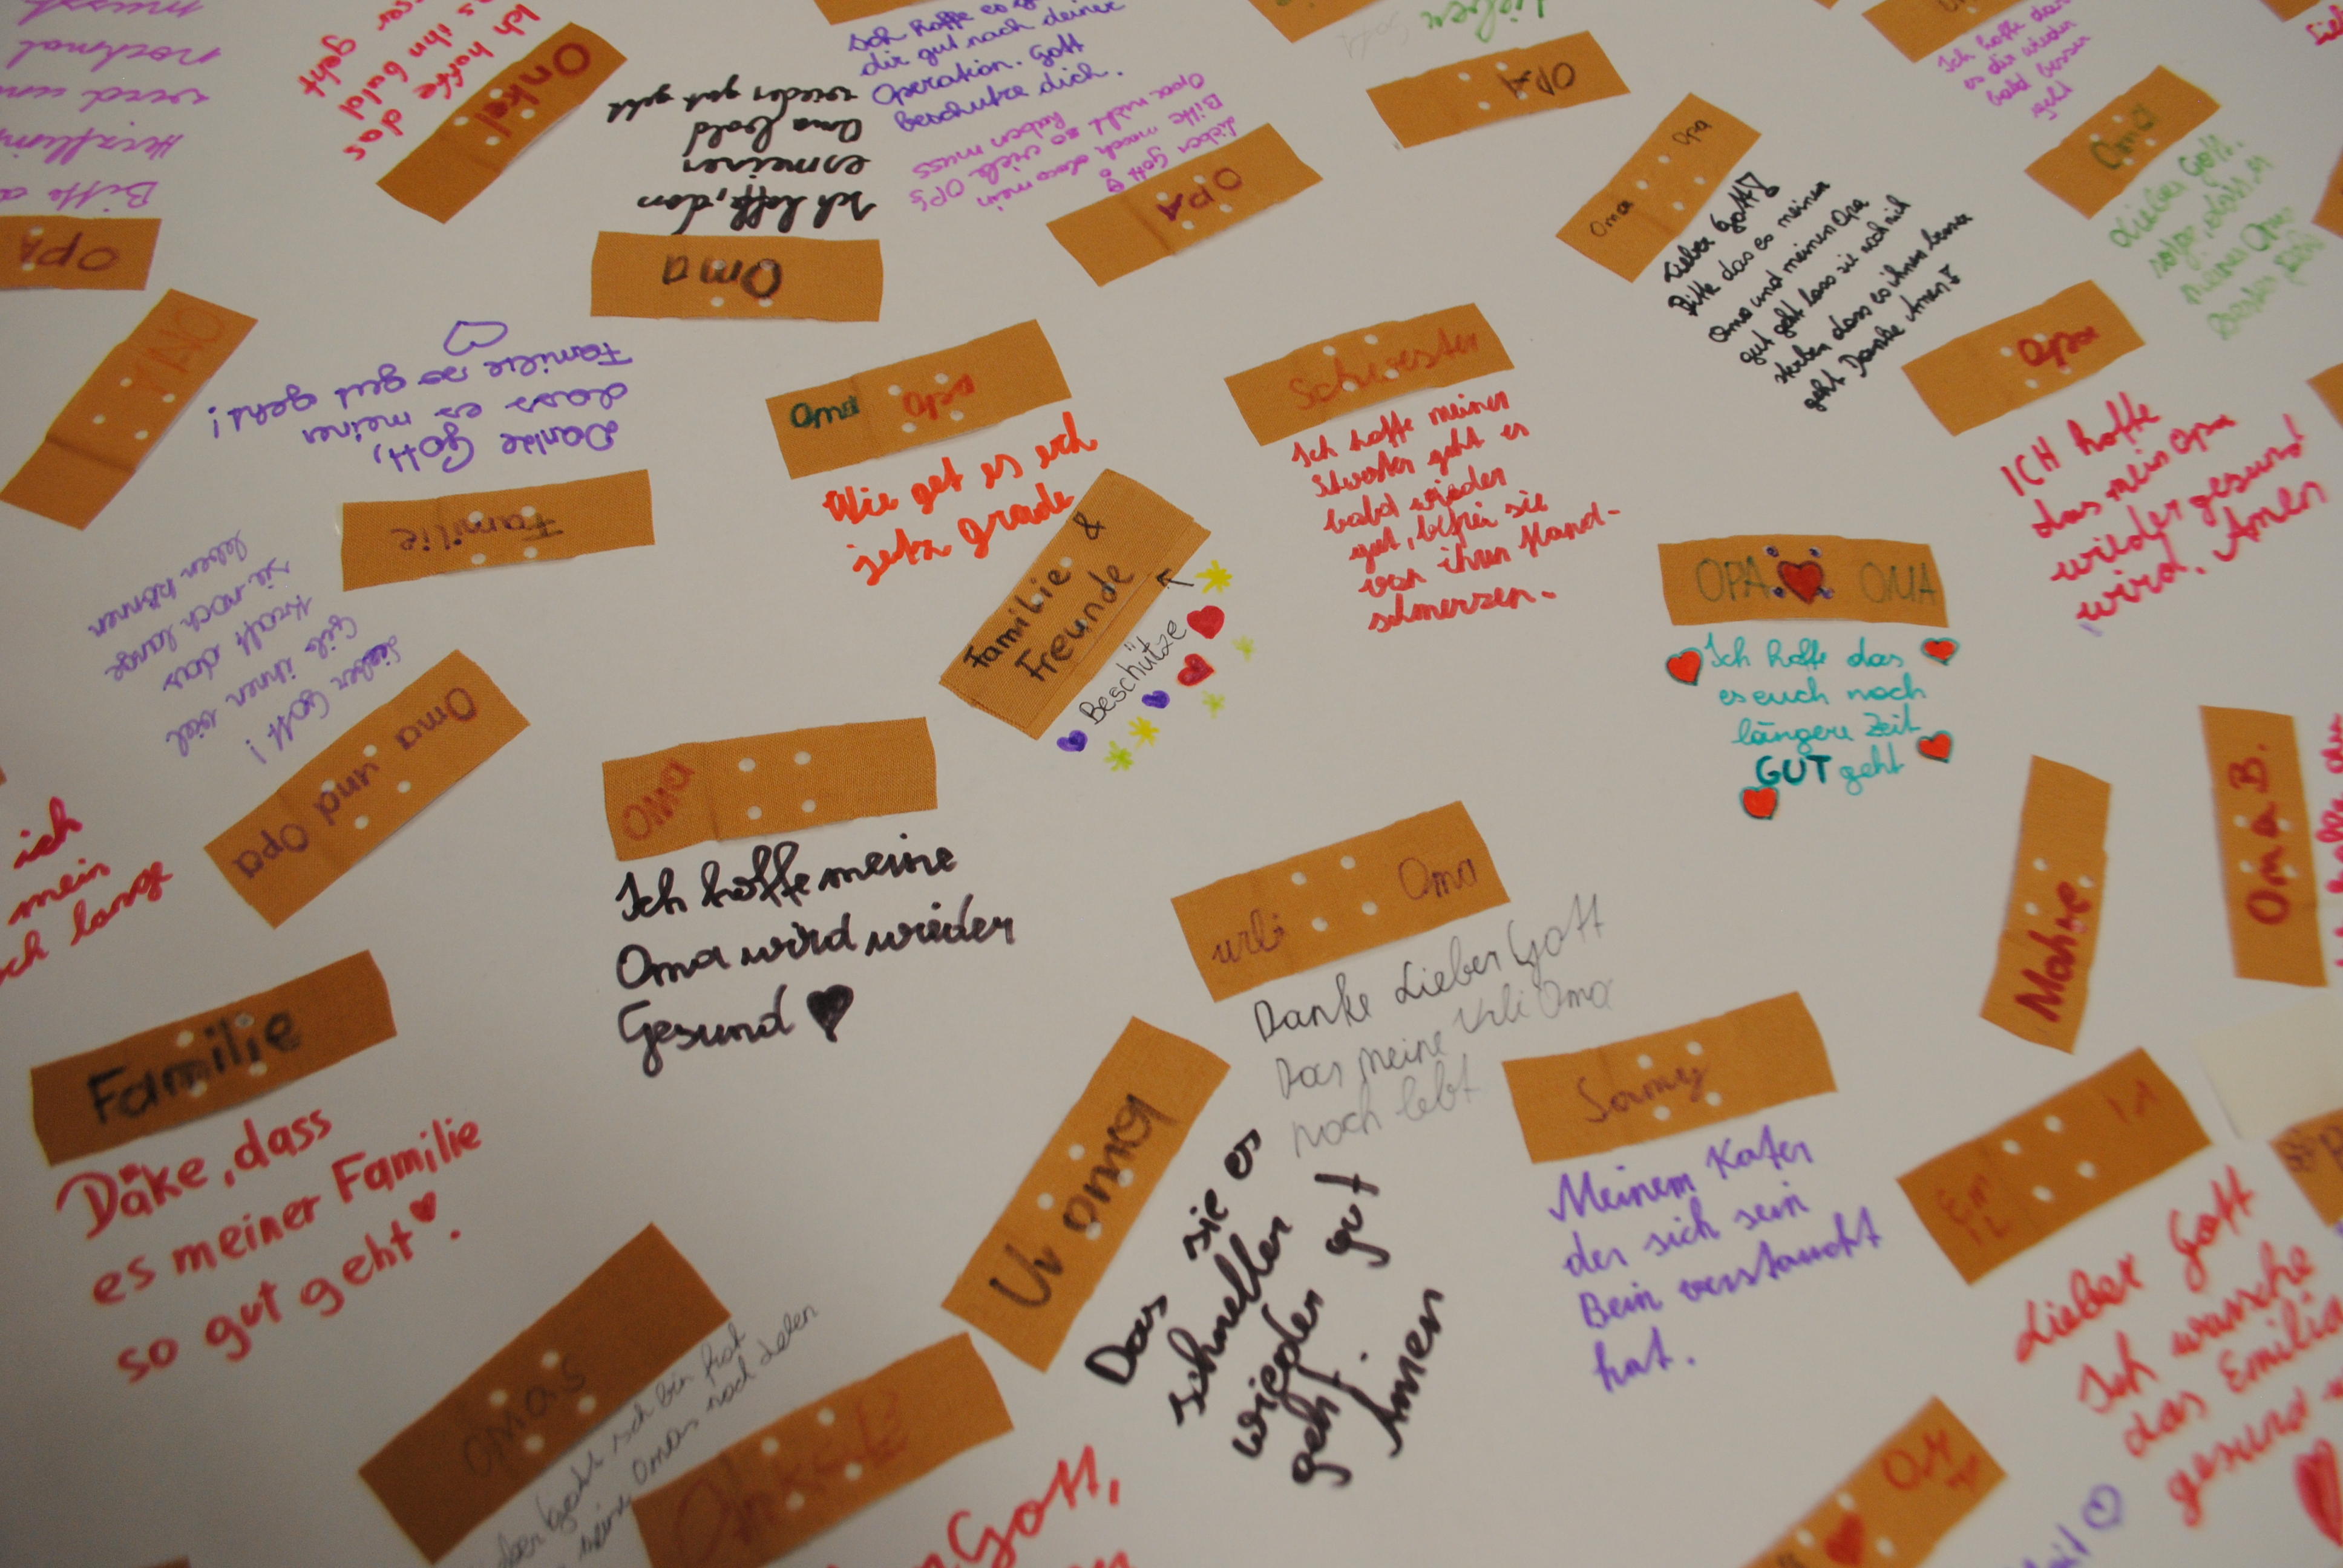 musst
nochmal
wird und
Bitte
OPA
Ich hoffe das
es ihn bald
geht
Onkel
Ich hoffe, dass
es meiner
Oma bald
wieder gut geht
Oma
Ich hoffe es
dir gut nach deiner
Operation. Gott
beschütze dich.
Lieber Gott
Bitte mach das mein
Opa nicht so viele OPs
haben muss
OPA
lieben
OPA
Oma Opa
Lieber Gott
Bitte das es meiner
Oma und meinen Opa
gut geht lass sie noch nich
sterben dass es ihnen immer
geht Danke Amen
Ich hoffe das
es dir wieder
bald besser
geht
Oma
Lieber Gott.
meiner Oma
OMA
Danke Gott,
dass es meiner
Familie so gut geht!
Familie
Oma Opa
Wie get es euch
jetz grade
Schwester
Ich hoffe meiner
Swester geht es
bald wieder
gut, befrei sie
von ihren Hand-
schmerzen.
Opa
ICH hoffe
das mein Opa
wieder gesund
wird. Amen
Familie &
Freunde
Beschütze
OPA OMA
Ich hoffe das
es euch noch
längere Zeit
GUT geht
Lieber Gott!
Gib ihnen viel
Kraft das
sie noch lange
leben können
Oma und Opa
ich
mein
lange
OMA
Ich hoffe meine
Oma wird wieder
Gesund
urli Oma
Danke Lieber Gott
Das meine Urli Oma
noch lebt
Oma B.
Familie
Däke, dass
es meiner Familie
so gut geht.
Ur oma
Das sie es
schneller
wieder gut
geht.
Amen
Meinem Kater
der sich sein
Bein verstaucht
hat.
Lieber Gott
Ich wünsche
das Emilia
gesund
omas
ich bin froh
meine Omas noch leben
Gott,